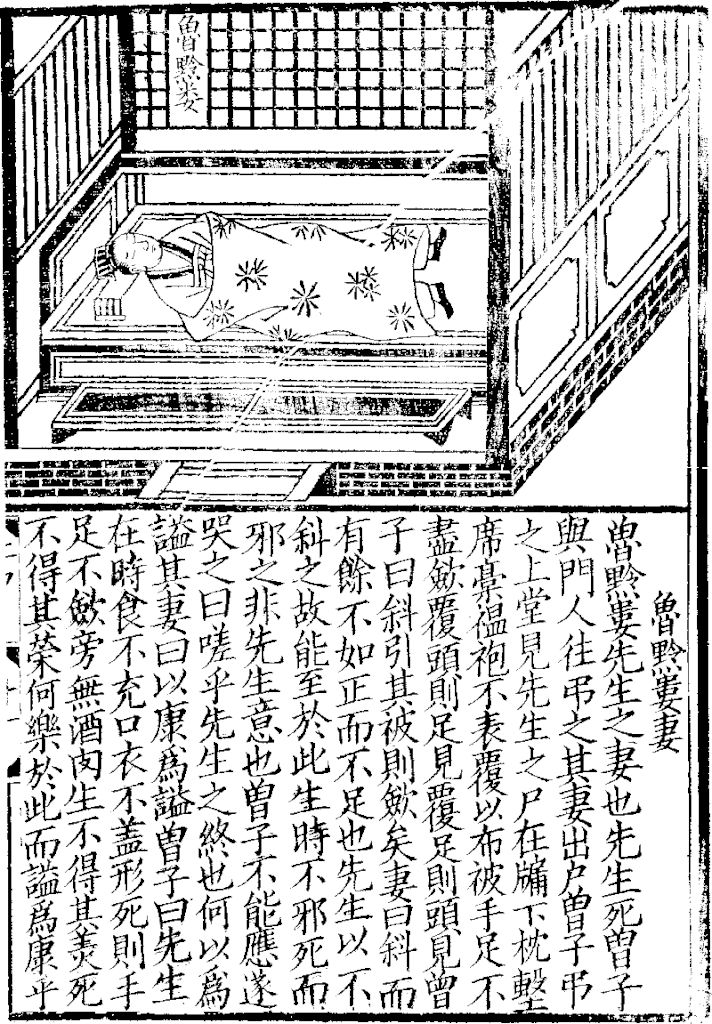 魯黔婁
魯黔婁妻
魯黔婁先生之妻也先生死曽子
與門人往弔之其妻出户曽子弔
之上堂見先生之尸在牖下枕墼
席稾緼袍不表覆以布被手足不
盡歛覆頭則足見覆足則頭見曽
子曰斜引其被則歛矣妻曰斜而
有餘不如正而不足也先生以不
斜之故能至於此生時不邪死而
邪之非先生意也曽子不能應遂
哭之曰嗟乎先生之終也何以爲
謚其妻曰以康爲謚曽子曰先生
在時食不充口衣不盖形死則手
足不歛旁無酒肉生不得其美死
不得其榮何樂於此而謚爲康乎